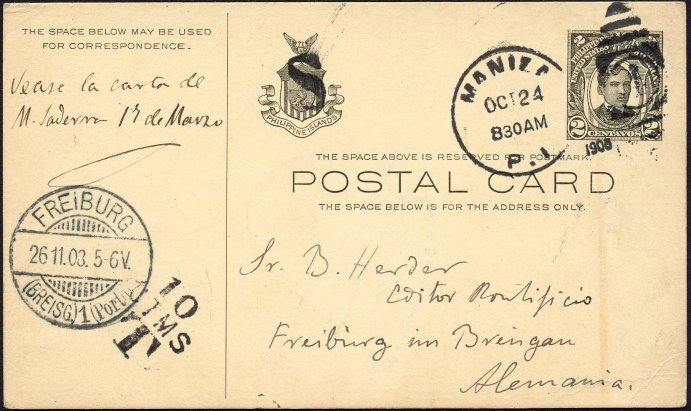 THE SPACE BELOW MAY BE USED
FOR CORRESPONDENCE.
Vease la carta de
M. Saderra 17 de Marzo
FREIBURG
26 11.08. 5-6V.
(BREISG.) 1 (Portp.)
10
TMS
T
S
PHILIPPINE ISLANDS
MANILA
OCT 24
830AM
P. I.
1908
2 CENTAVOS 2
THE SPACE ABOVE IS RESERVED FOR POSTMARK.
POSTAL CARD
THE SPACE BELOW IS FOR THE ADDRESS ONLY.
Sr. B. Herder
Editor Pontificio
Freiburg im Breisgau
Alemania.